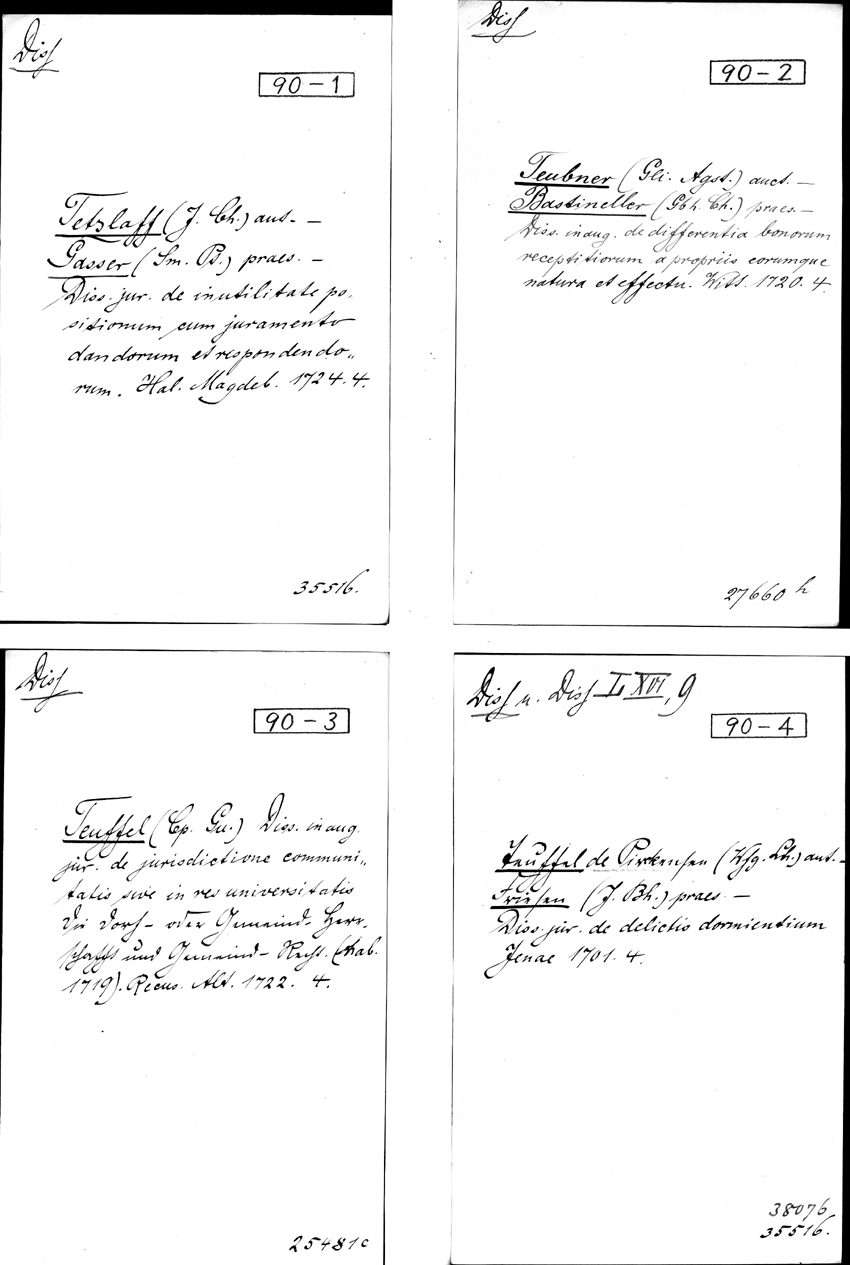 Diss
90-1
Tetzlaff (J. Ch.) aut. —
Gasser (Sm. P.) praes. —
Diss. jur. de inutilitate po-
sitionum cum juramento
dandorum et respondendo-
rum. Hal. Magdeb. 1724. 4.
35516.
Diss
90-2
Teubner (Gli. Agst.) auct. —
Bastineller (Gbh. Ch.) praes. —
Diss. inaug. de differentia bonorum
receptitiorum a propriis eorumque
natura et effectu. Witt. 1720. 4.
27660 h
Diss
90-3
Teuffel (Cp. Gu.) Diss. inaug.
jur. de jurisdictione communi-
tatis sive in res universitatis
Die Dorf- oder Gemeind- Herr-
schafft und Gemeind- Recht.
1719). Recus. Alt. 1722. 4.
25481c
Diss u. Diss L XVI, 9
90-4
Teuffel de Pirkensee (Wfg. Ch.) aut. —
Friesen (J. Bh.) praes. —
Diss. jur. de delictis dormientium
Jenae 1701. 4.
38076
35516.